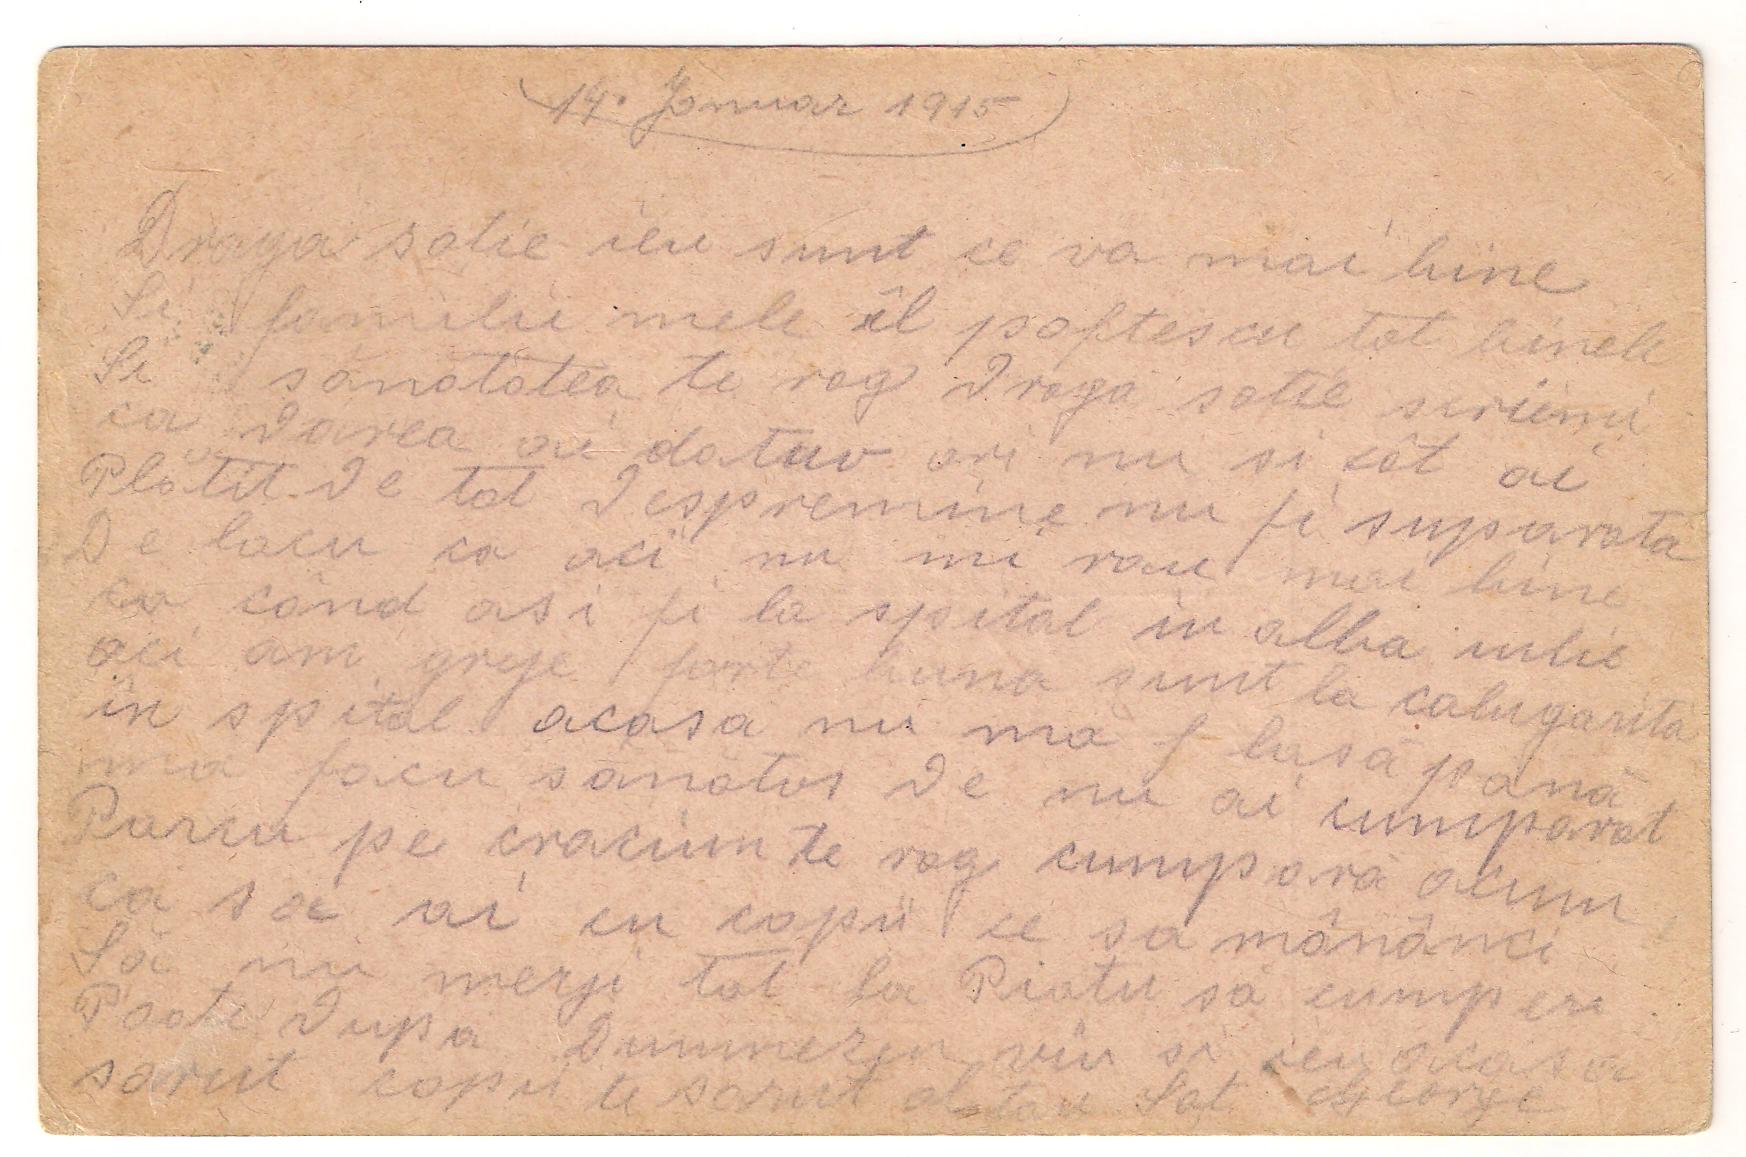 14. Januar 1915
Draga sotie ieu sunt ce va mai bine
Si familii mele îl poftescu tot binele
Si sănatatea te rog Draga sotie scriemi
ca Darea ai datuo ori nu si cât ai
Plătit De tot Despremine nu fi suparata
De locu ca aci nu mi rau mai bine
ca când asi fi la spital in alba iulie
aci am grije forte buna sunt la calugarita
in spital acasa nu ma lasă pănă
ma facu sănatos De nu ai cumparat
Porcu pe craciun te rog cumpară acum
ca să ai cu copii ce sa mânânci
Să nu merji tot la Piatu să cumperi
Poate Dupa Dumnezeu viu si ieu acasa
sarut copii te sarut al tau Sot George